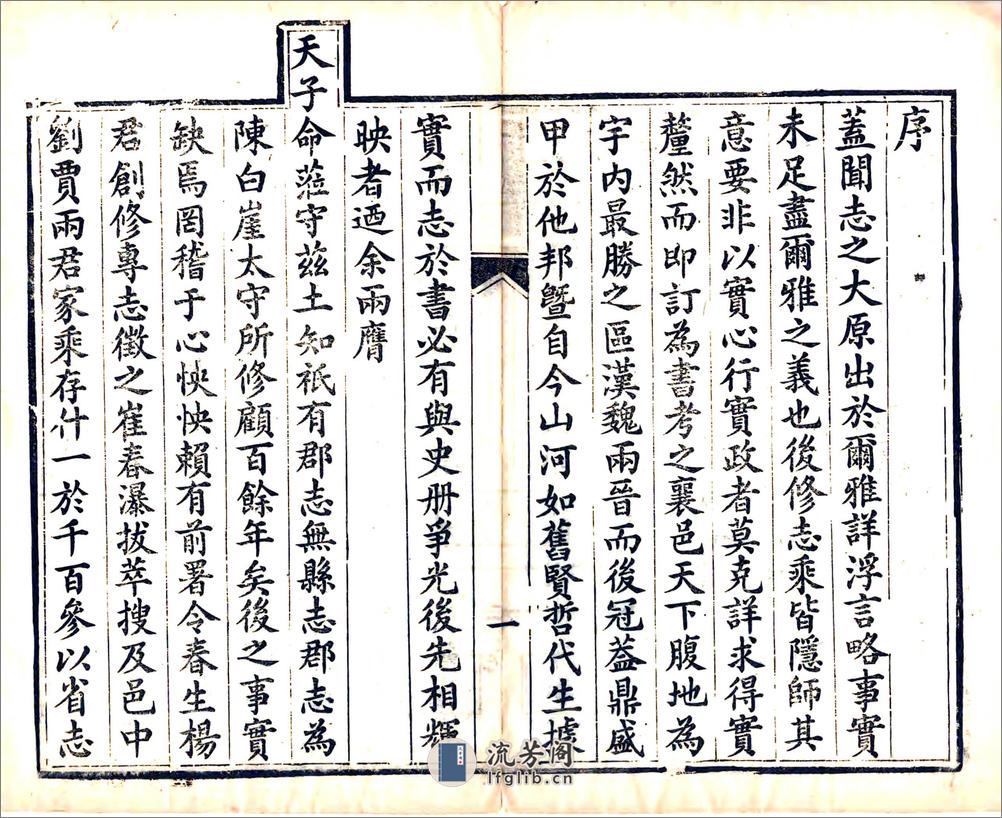 序
蓋聞志之大原出於爾雅詳浮言略事實
未足盡爾雅之義也後修志乘皆隱師其
意要非以實心行實政者莫克詳求得實
釐然而即訂為書考之襄邑天下腹地為
宇内最勝之區漢魏兩晉而後冠蓋鼎盛
甲於他邦曁自今山河如舊賢哲代生據
一
實而志於書必有與史册爭光後先相輝
映者迺余兩膺
天子命蒞守茲土知祇有郡志無縣志郡志為
陳白崖太守所修顧百餘年矣後之事實
缺焉罔稽于心怏怏賴有前署令春生楊
君創修專志徵之崔春瀑拔萃搜及邑中
劉賈兩君家乘存什一於千百參以省志
流芳阁
lfglib.cn